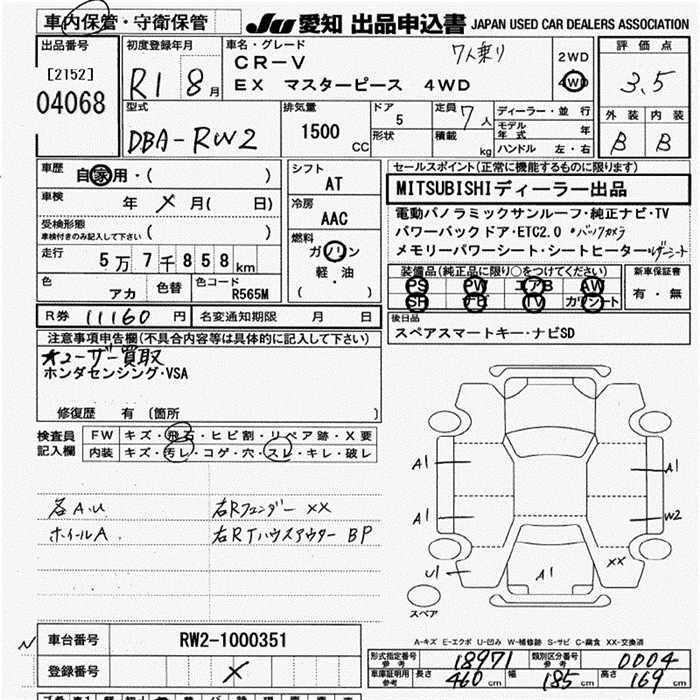 車内保管・守衛保管
JU 愛知 出品申込書 JAPAN USED CAR DEALERS ASSOCIATION
出品番号
[2152]
04068
初度登録年月
R1 8月
車名・グレード
7人乗り
CR-V
EX マスターピース 4WD
2WD
4WD
評価点
3.5
外装 内装
B B
型式
DBA-RW2
排気量
1500
CC
ドア
5
形状
定員 7人
積載 kg
ディーラー・並行
モデル年式 年
ハンドル 左・右
車歴
自家用・( )
車検
年 × 月( 日)
受検形態
車検付きのみ記入して下さい ( )
走行
5万7千858km
色
アカ
色替
色コード
R565M
シフト
AT
冷房
AAC
燃料
ガソリン
軽・油
( )
セールスポイント(正常に機能するものに限ります)
MITSUBISHIディーラー出品
電動パノラミックサンルーフ・純正ナビ・TV
パワーバックドア・ETC2.0 ・バックカメラ
メモリーパワーシート・シートヒーター・レザーシート
装備品(純正品に限り○をつけてください)
PS PW エアB AW
SR ナビ TV カワシート
新車保証書
有・無
R券 11160 円
名変通知期限 月 日
後日品
スペアスマートキー・ナビSD
注意事項申告欄(不具合内容等は具体的に記入して下さい)
ユーザー買取
ホンダセンシング・VSA
修復歴 有 〔箇所 〕
検査員記入欄
FW キズ・飛石・ヒビ割・リペア跡・X要
内装 キズ・汚レ・コゲ・穴・スレ・キレ・破レ
各A.U
ホイールA
右Rフェンダー ××
右RTハウスアウター BP
A1
A1
A1
W2
U1
A1
××
スペア
A-キズ E-エクボ U-凹み W-補修跡 S-サビ C-腐食 XX-交換済
N
車台番号
RW2-1000351
登録番号
×
形式指定番号
参考
18971
類別区分番号
参考
0004
車庫証明用
参考
長さ 460cm 幅 185cm 高さ 169cm